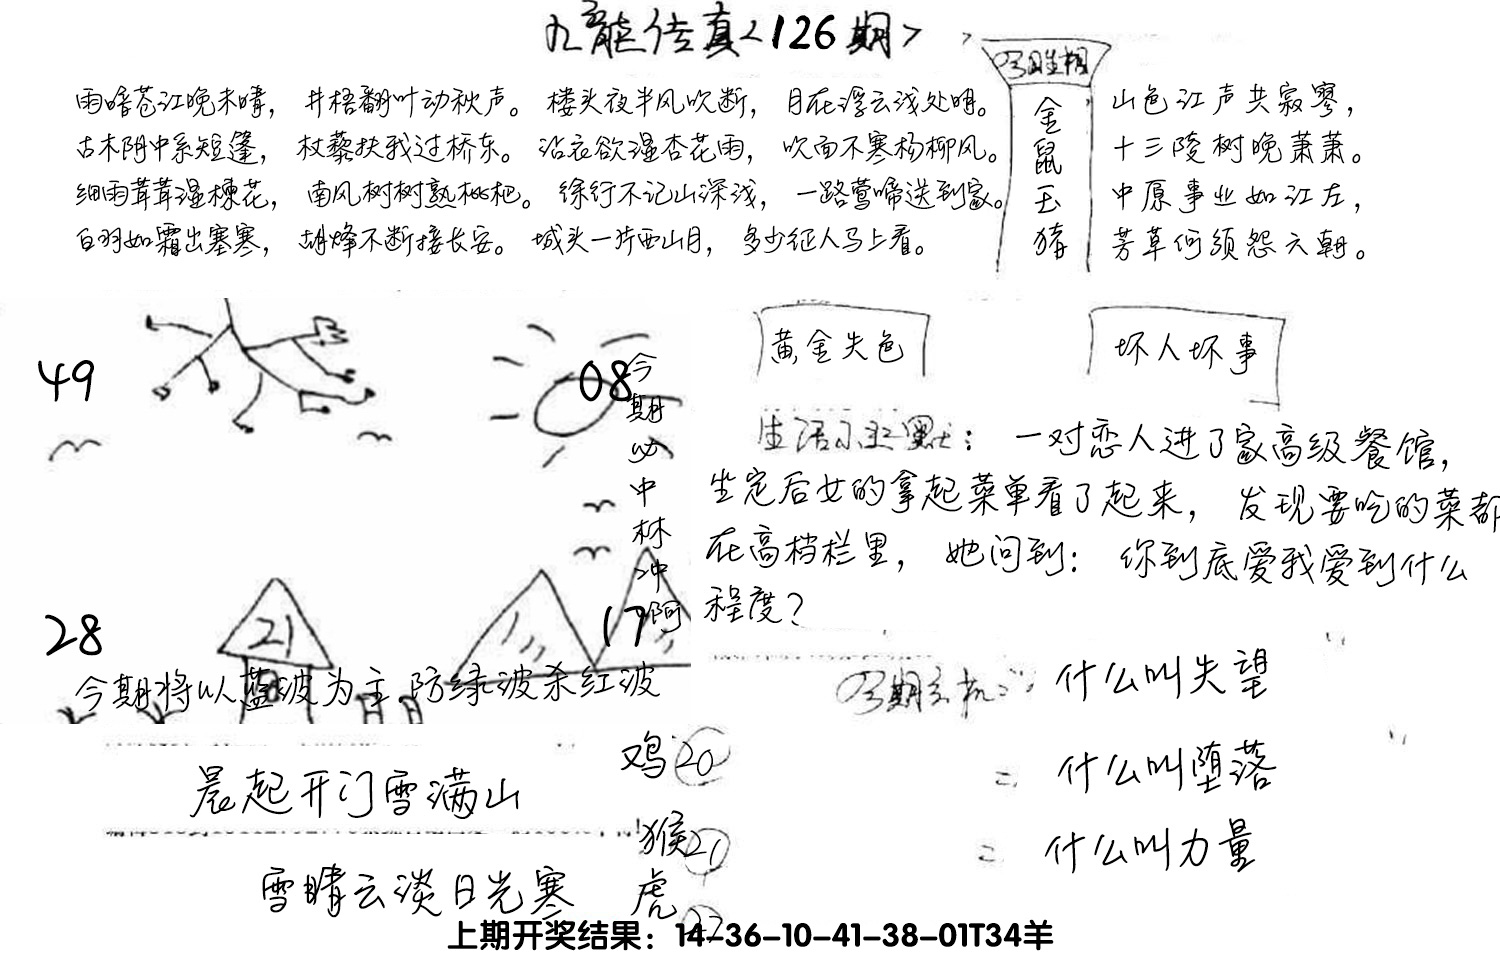 九龙传真<126期>
雨暗苍江晚未晴，井梧翻叶动秋声。楼头夜半风吹断，月在浮云浅处明。
古木阴中系短篷，杖藜扶我过桥东。沾衣欲湿杏花雨，吹面不寒杨柳风。
细雨茸茸湿楝花，南风树树熟枇杷。徐行不记山深浅，一路莺啼送到家。
白羽如霜出塞寒，胡烽不断接长安。城头一片西山月，多少征人马上看。
金
鼠
玉
猪
山色江声共寂寥，
十三陵树晚萧萧。
中原事业如江左，
芳草何须怨六朝。
49
08
28
21
17
今
期
必
中
林
冲
啊
今期将以蓝波为主.防绿波杀红波
黄金失色
坏人坏事
生活小幽默：一对恋人进了家高级餐馆，
坐定后女的拿起菜单看了起来，发现要吃的菜都
在高档栏里，她问到：你到底爱我爱到什么
程度？
什么叫失望
= 什么叫堕落
= 什么叫力量
晨起开门雪满山
雪晴云淡日光寒
鸡20
猴21
虎
上期开奖结果：14-36-10-41-38-01T34羊